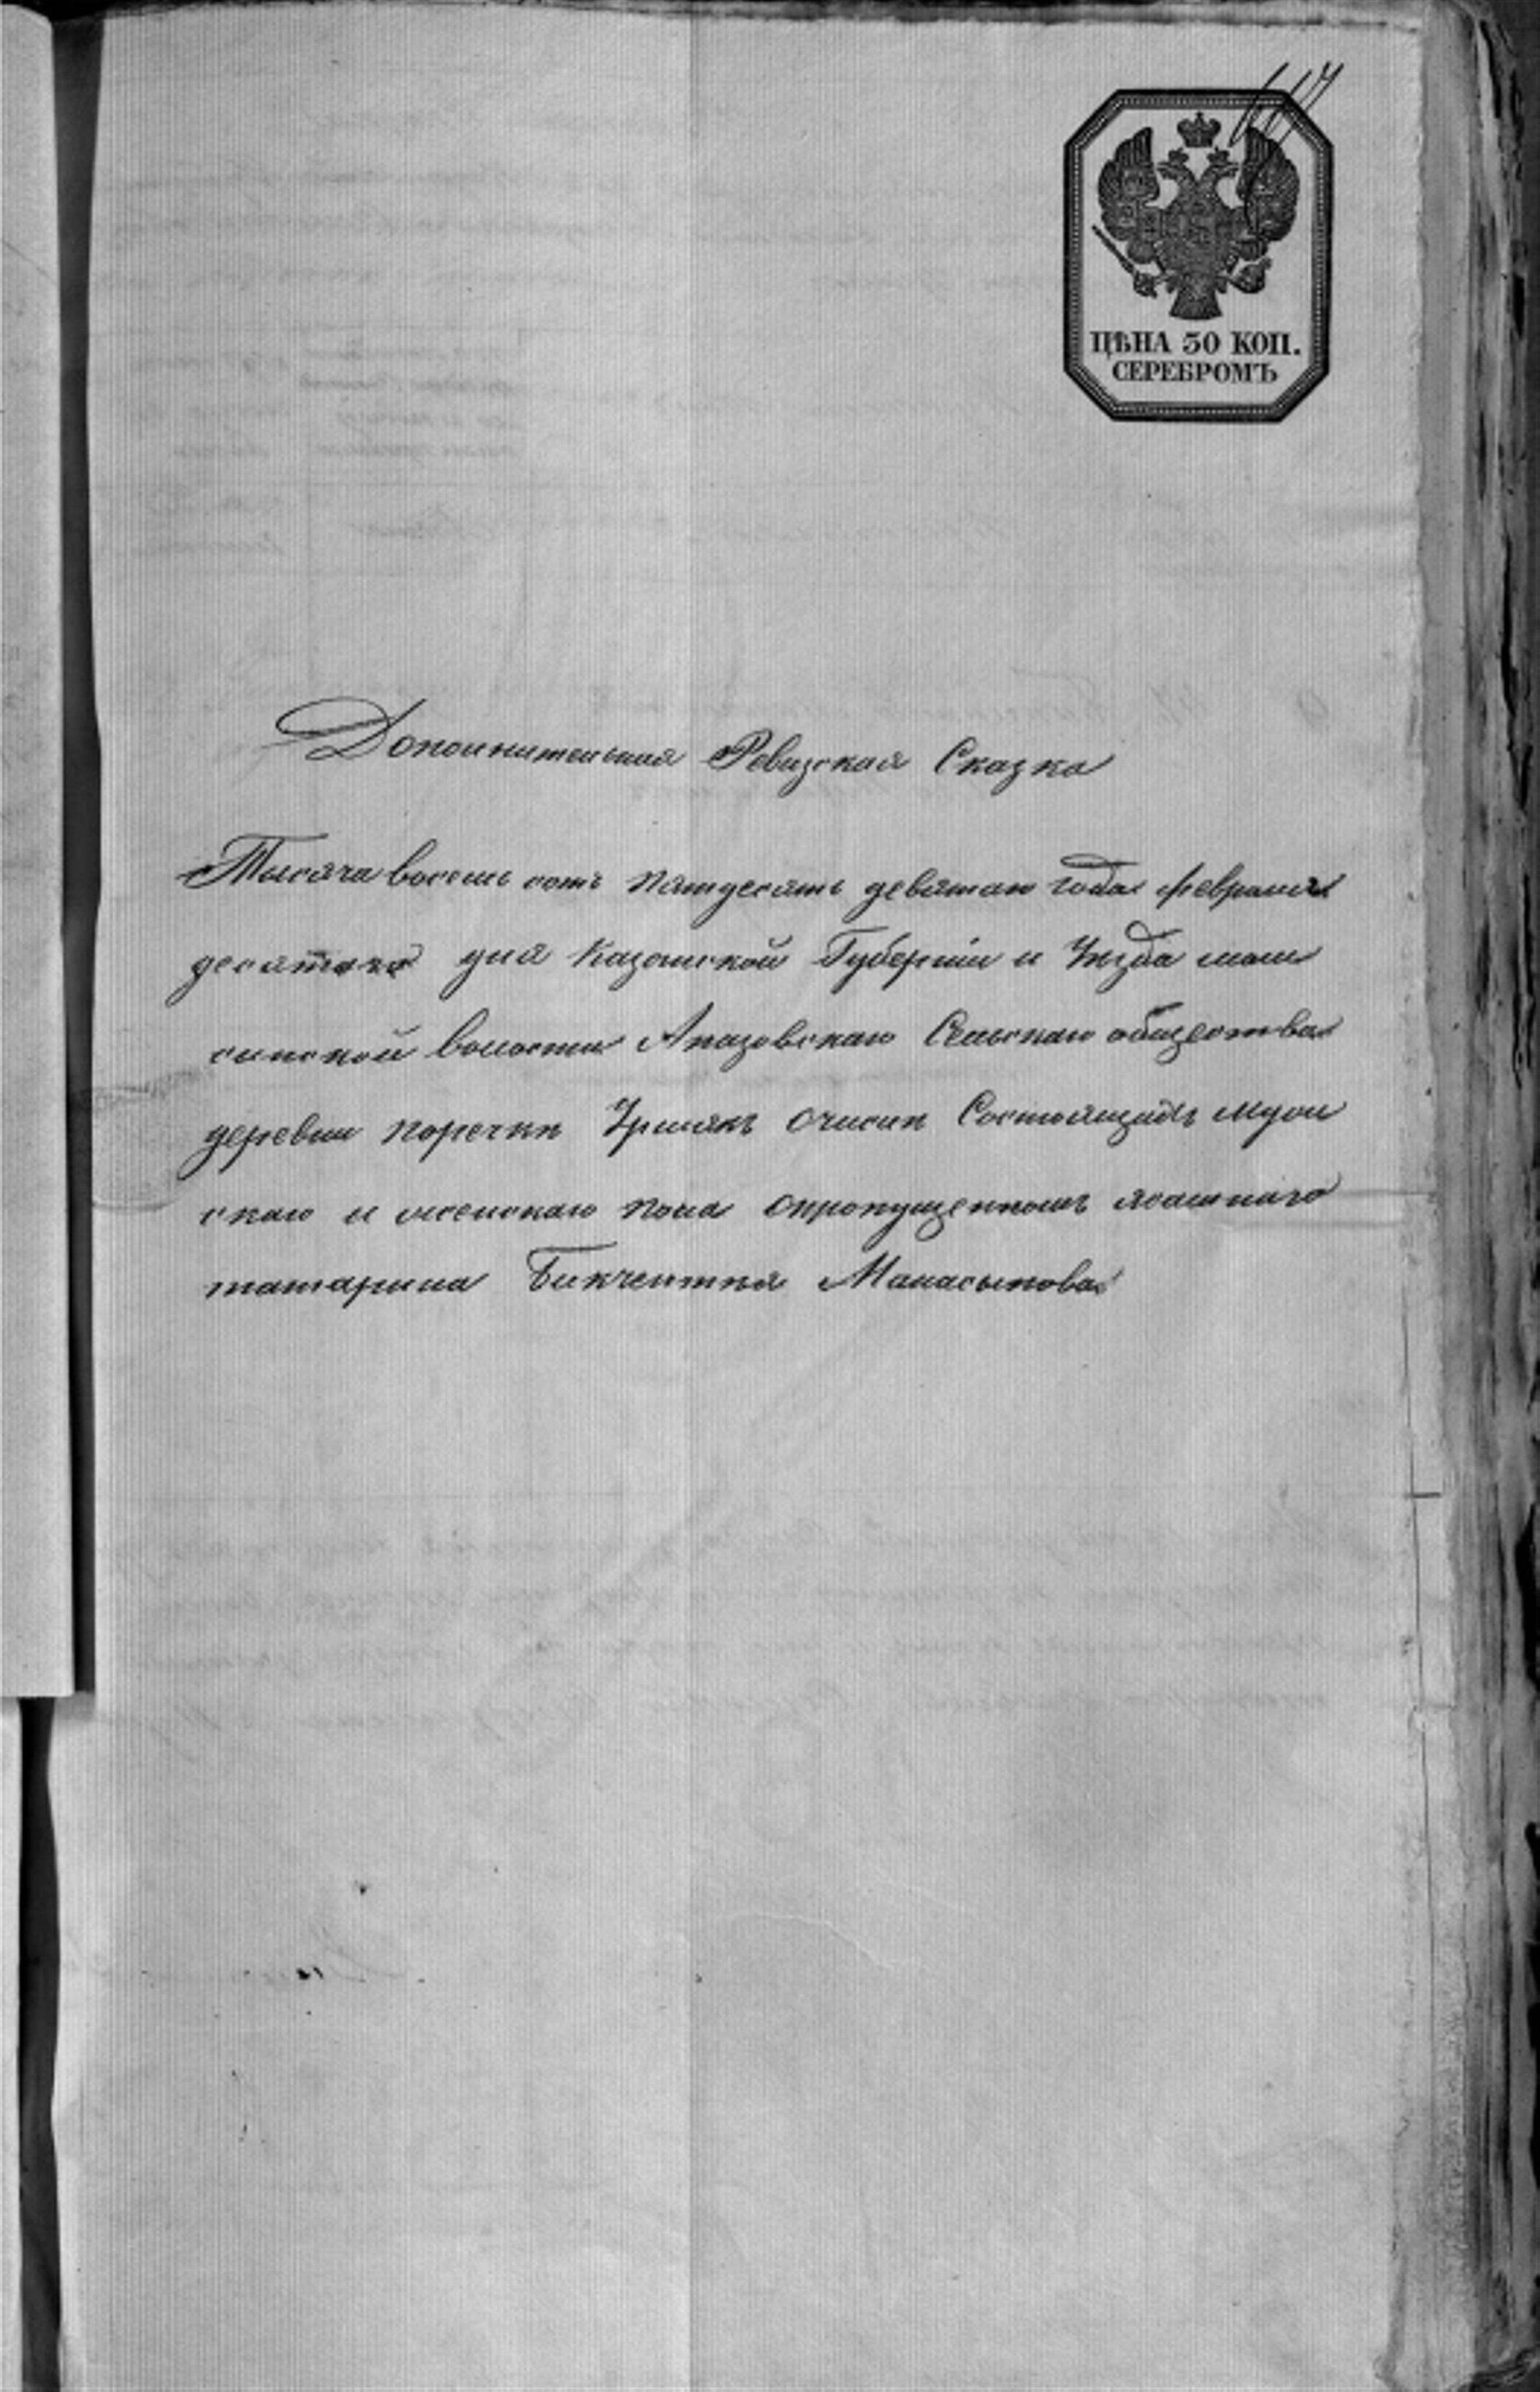 ЦѢНА 30 КОП.
СЕРЕБРОМЪ
Дополнительная Ревизская Сказка
Тысяча восемь сотъ пятдесятъ девятаго года февраля
десятого дня Казанской Губерніи и Уезда мам
синской волости Апазовскаго Сельскаго общества
деревни поречке Урмякъ очисле Состоящихъ муж
скаго и женскаго пола опропущенномъ ясашнаго
татарина Бикчентея Манасыпова